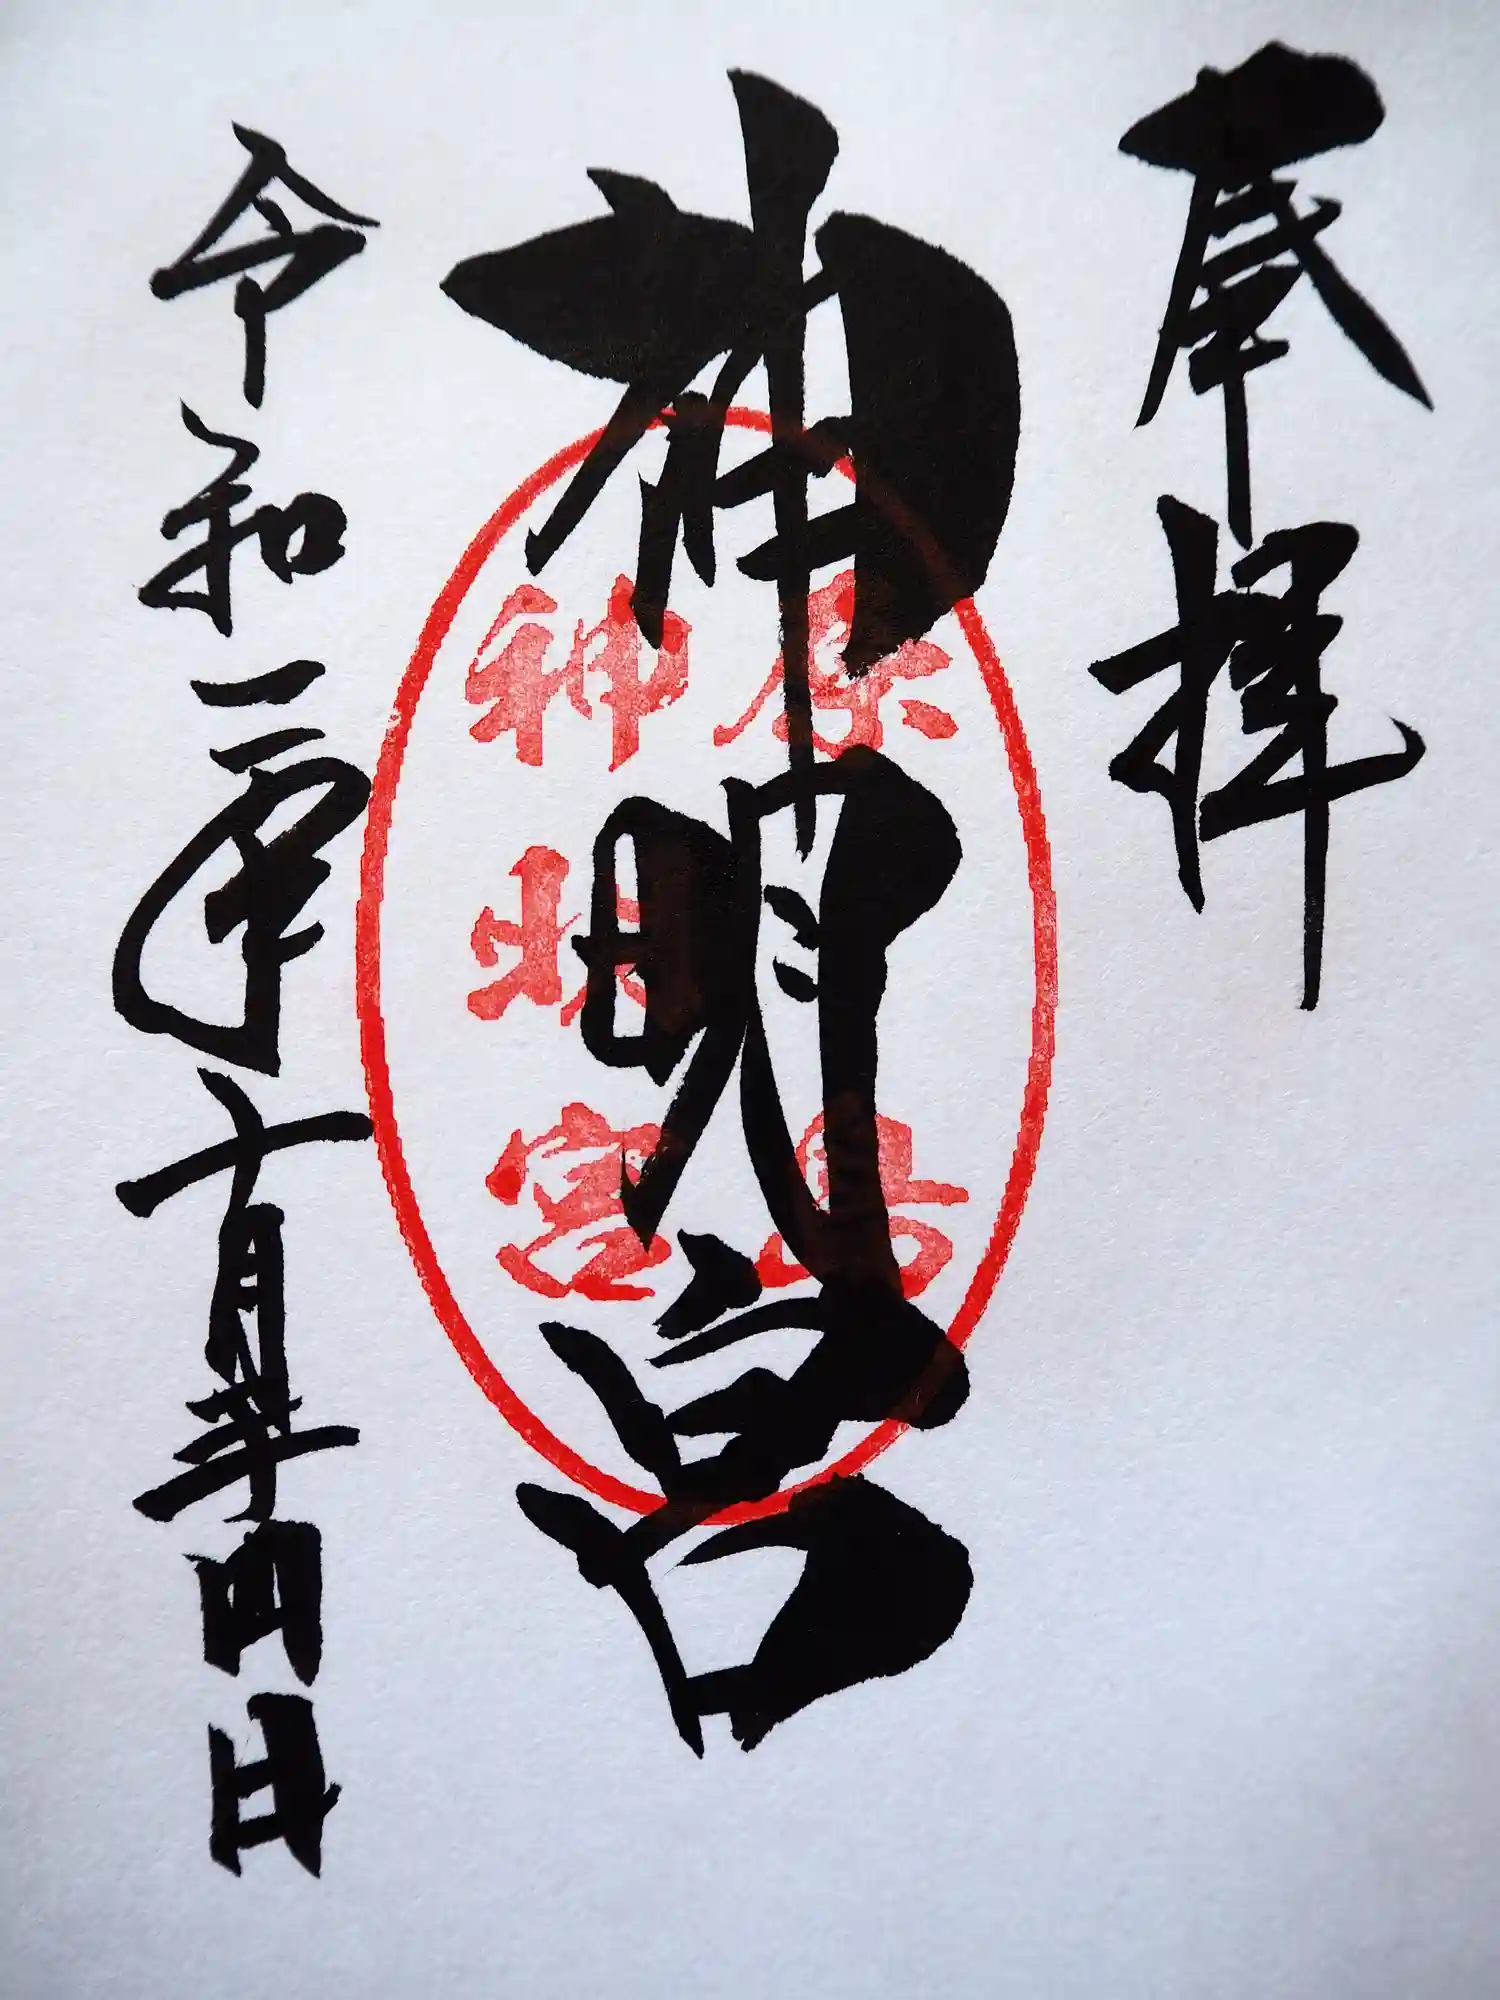 奉拝
神明宮
原島
神明宮
令和二年十月廿四日